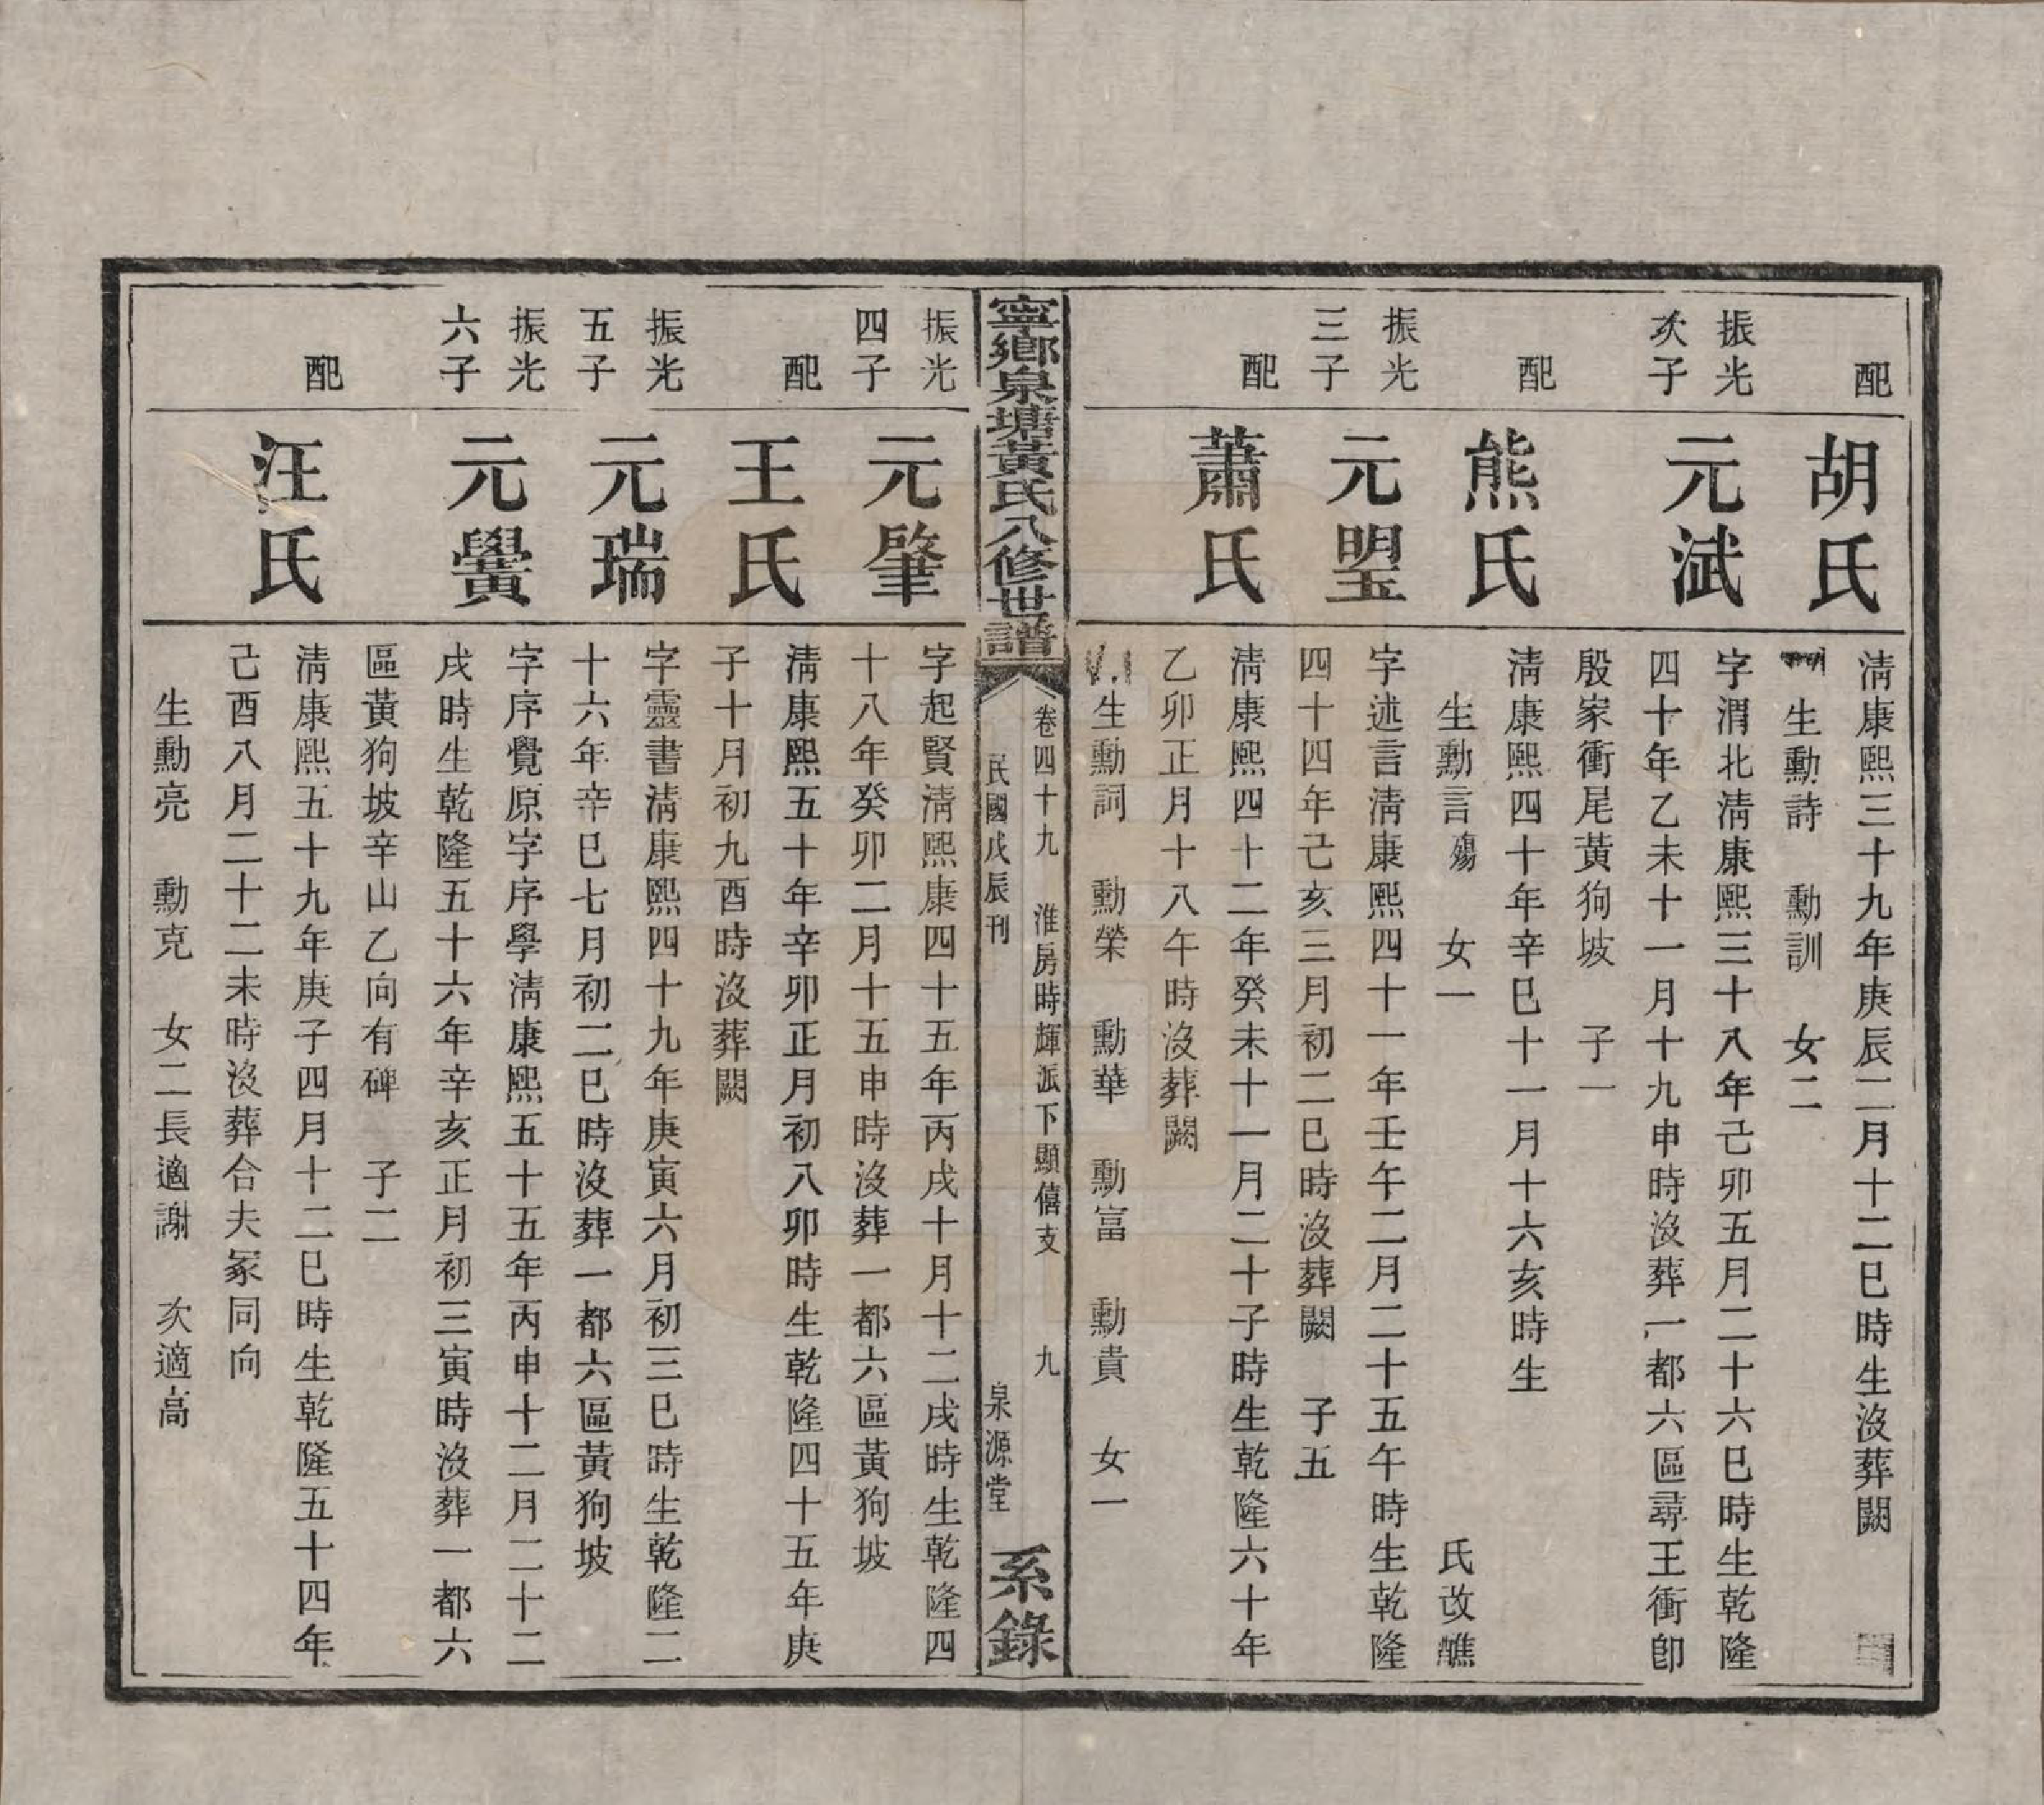 配
胡氏
清康熙三十九年庚辰二月十二巳時生沒葬闕
生勳詩　勳訓　女二
振光
次子
元斌
字渭北淸康熙三十八年己卯五月二十六巳時生乾隆
四十年乙未十一月十九申時沒葬一都六區尋王衝卽
殷家衝尾黃狗坡　子一
配
熊氏
淸康熙四十年辛巳十一月十六亥時生
生勳言殤　女一　氏改醮
振光
三子
元琞
字述言淸康熙四十一年壬午二月二十五午時生乾隆
四十四年己亥三月初二巳時沒葬闕　子五
配
蕭氏
淸康熙四十二年癸未十一月二十子時生乾隆六十年
乙卯正月十八午時沒葬闕
生勳詞　勳榮　勳華　勳富　勳貴　女一
寧鄉泉塘黃氏八修世譜
卷四十九　淮房時輝派下顯僖支　九
民國戊辰刊　泉源堂
系錄
振光
四子
元肇
字起賢淸熙康四十五年丙戌十月十二戌時生乾隆四
十八年癸卯二月十五申時沒葬一都六區黃狗坡
配
王氏
淸康熙五十年辛卯正月初八卯時生乾隆四十五年庚
子十月初九酉時沒葬闕
振光
五子
元瑞
字靈書淸康熙四十九年庚寅六月初三巳時生乾隆二
十六年辛巳七月初二巳時沒葬一都六區黃狗坡
振光
六子
元黌
字序覺原字序學淸康熙五十五年丙申十二月二十二
戌時生乾隆五十六年辛亥正月初三寅時沒葬一都六
區黃狗坡辛山乙向有碑　子二
配
汪氏
淸康熙五十九年庚子四月十二巳時生乾隆五十四年
己酉八月二十二未時沒葬合夫冢同向
生勳亮　勳克　女二長適謝　次適高